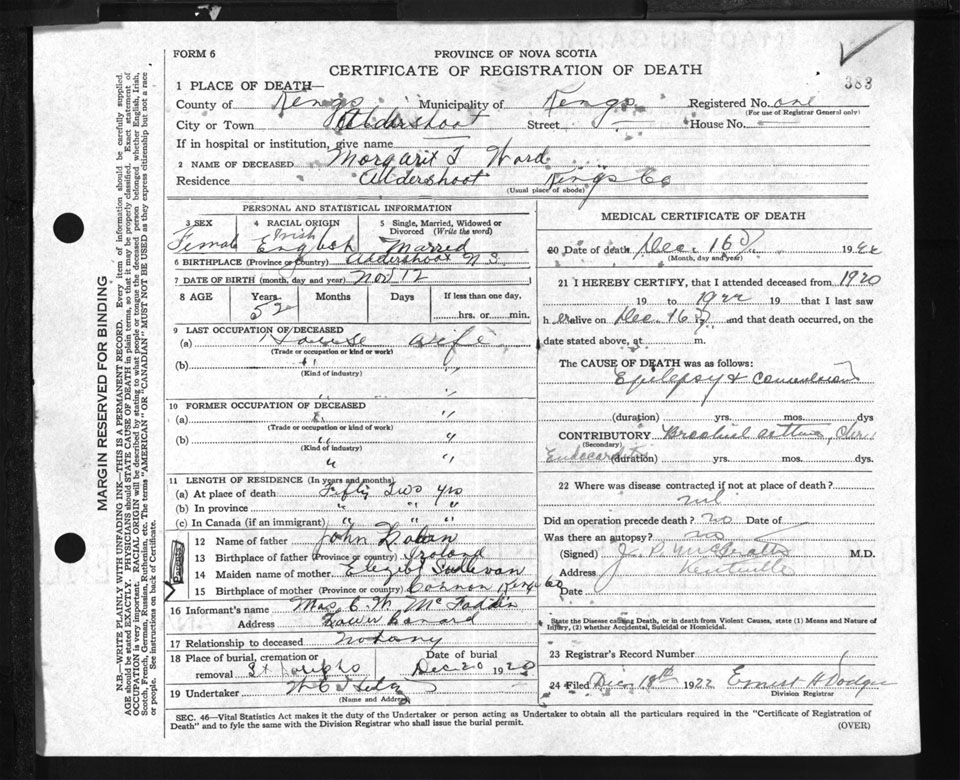 FORM 6
PROVINCE OF NOVA SCOTIA
CERTIFICATE OF REGISTRATION OF DEATH
383
1 PLACE OF DEATH—
County of Kings Municipality of Kings Registered No. one
(For use of Registrar General only)
City or Town Aldershoot Street — House No. —
If in hospital or institution, give name —
2 NAME OF DECEASED Morgarit T Ward
Residence Aldershoot Kings Co
(Usual place of abode)
MARGIN RESERVED FOR BINDING
N.B.—WRITE PLAINLY WITH UNFADING INK—THIS IS A PERMANENT RECORD. Every item of information should be carefully supplied.
AGE should be stated EXACTLY. PHYSICIANS should STATE CAUSE OF DEATH in plain terms, so that it may be properly classified. Exact statement of
OCCUPATION is very important. RACIAL ORIGIN will be described by stating to what people or tongue the deceased person belonged whether English, Irish,
Scotch, French, German, Russian, Ruthenian, etc. The terms "AMERICAN" OR "CANADIAN" MUST NOT BE USED as they express citizenship but not a race
or people. See instructions on back of Certificate.
PERSONAL AND STATISTICAL INFORMATION
3 SEX 4 RACIAL ORIGIN 5 Single, Married, Widowed or
Divorced (Write the word)
Irish
Female English Marred
6 BIRTHPLACE (Province or Country) Aldershoot N S
7 DATE OF BIRTH (month, day and year) Nov 12
8 AGE Years Months Days If less than one day,
52 hrs. or min.
9 LAST OCCUPATION OF DECEASED
(a) House wife
(Trade or occupation or kind or work)
(b) "
(Kind of industry)
10 FORMER OCCUPATION OF DECEASED
(a) " "
(Trade or occupation or kind of work)
(b) " "
(Kind of industry)
" "
11 LENGTH OF RESIDENCE (In years and months)
(a) At place of death Fifty Two yrs
(b) In province " " "
(c) In Canada (if an immigrant) " " "
12 Name of father John
13 Birthplace of father (Province or country) Iroland
14 Maiden name of mother Sullivan
15 Birthplace of mother (Province or country) Kings co
16 Informant's name Mrs C W McFadden
Address Lower Canard
17 Relationship to deceased
18 Place of burial, cremation or Date of burial
removal St Josephs Dec 20 1923
19 Undertaker
(Name and Address)
MEDICAL CERTIFICATE OF DEATH
20 Date of death Dec. 16 19
(Month, day and year)
21 I HEREBY CERTIFY, that I attended deceased from 1920
19 to 1922 19 that I last saw
h er alive on Dec. 16 and that death occurred, on the
date stated above, at m.
The CAUSE OF DEATH was as follows:
Epilepsy & Convulsions
(duration) yrs. mos. dys
CONTRIBUTORY
(Secondary)
(duration) yrs. mos. dys.
22 Where was disease contracted if not at place of death?
nil
Did an operation precede death? no Date of
Was there an autopsy? no
(Signed) J. P. M.D.
Address Kentville
Date
State the Disease causing Death, or in death from Violent Causes, state (1) Means and Nature of
Injury, (2) whether Accidental, Suicidal or Homicidal.
23 Registrar's Record Number
24 Filed Dec. 18th 1922 Ernest H Dodge
Division Registrar
SEC. 46—Vital Statistics Act makes it the duty of the Undertaker or person acting as Undertaker to obtain all the particulars required in the "Certificate of Registration of
Death" and to fyle the same with the Division Registrar who shall issue the burial permit.
(OVER)